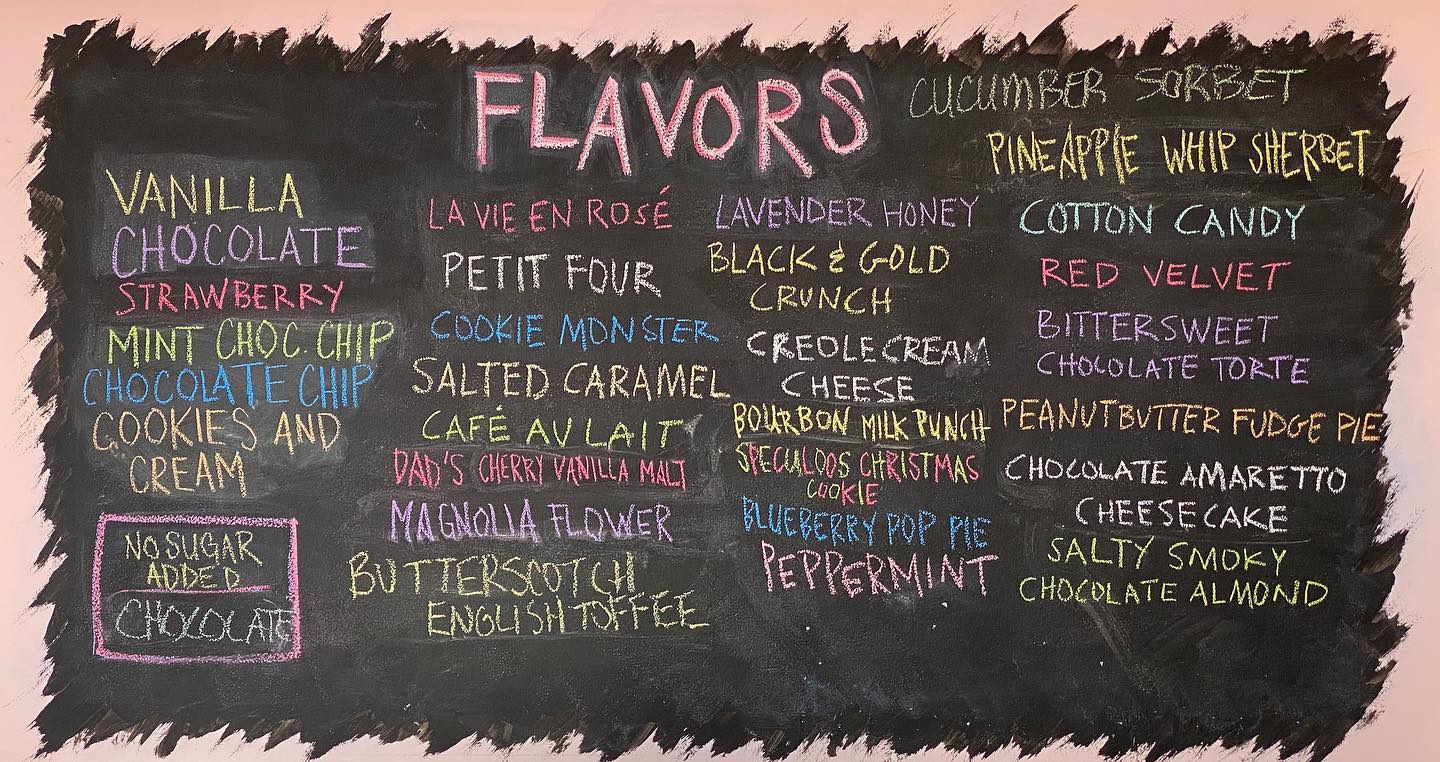 FLAVORS
VANILLA
CHOCOLATE
STRAWBERRY
MINT CHOC. CHIP
CHOCOLATE CHIP
COOKIES AND
CREAM
NO SUGAR
ADDED
CHOCOLATE
LA VIE EN ROSÉ
PETIT FOUR
COOKIE MONSTER
SALTED CARAMEL
CAFÉ AU LAIT
DAD'S CHERRY VANILLA MALT
MAGNOLIA FLOWER
BUTTERSCOTCH
ENGLISH TOFFEE
LAVENDER HONEY
BLACK & GOLD
CRUNCH
CREOLE CREAM
CHEESE
BOURBON MILK PUNCH
SPECULOOS CHRISTMAS
COOKIE
BLUEBERRY POP PIE
PEPPERMINT
CUCUMBER SORBET
PINEAPPLE WHIP SHERBET
COTTON CANDY
RED VELVET
BITTERSWEET
CHOCOLATE TORTE
PEANUTBUTTER FUDGE PIE
CHOCOLATE AMARETTO
CHEESECAKE
SALTY SMOKY
CHOCOLATE ALMOND